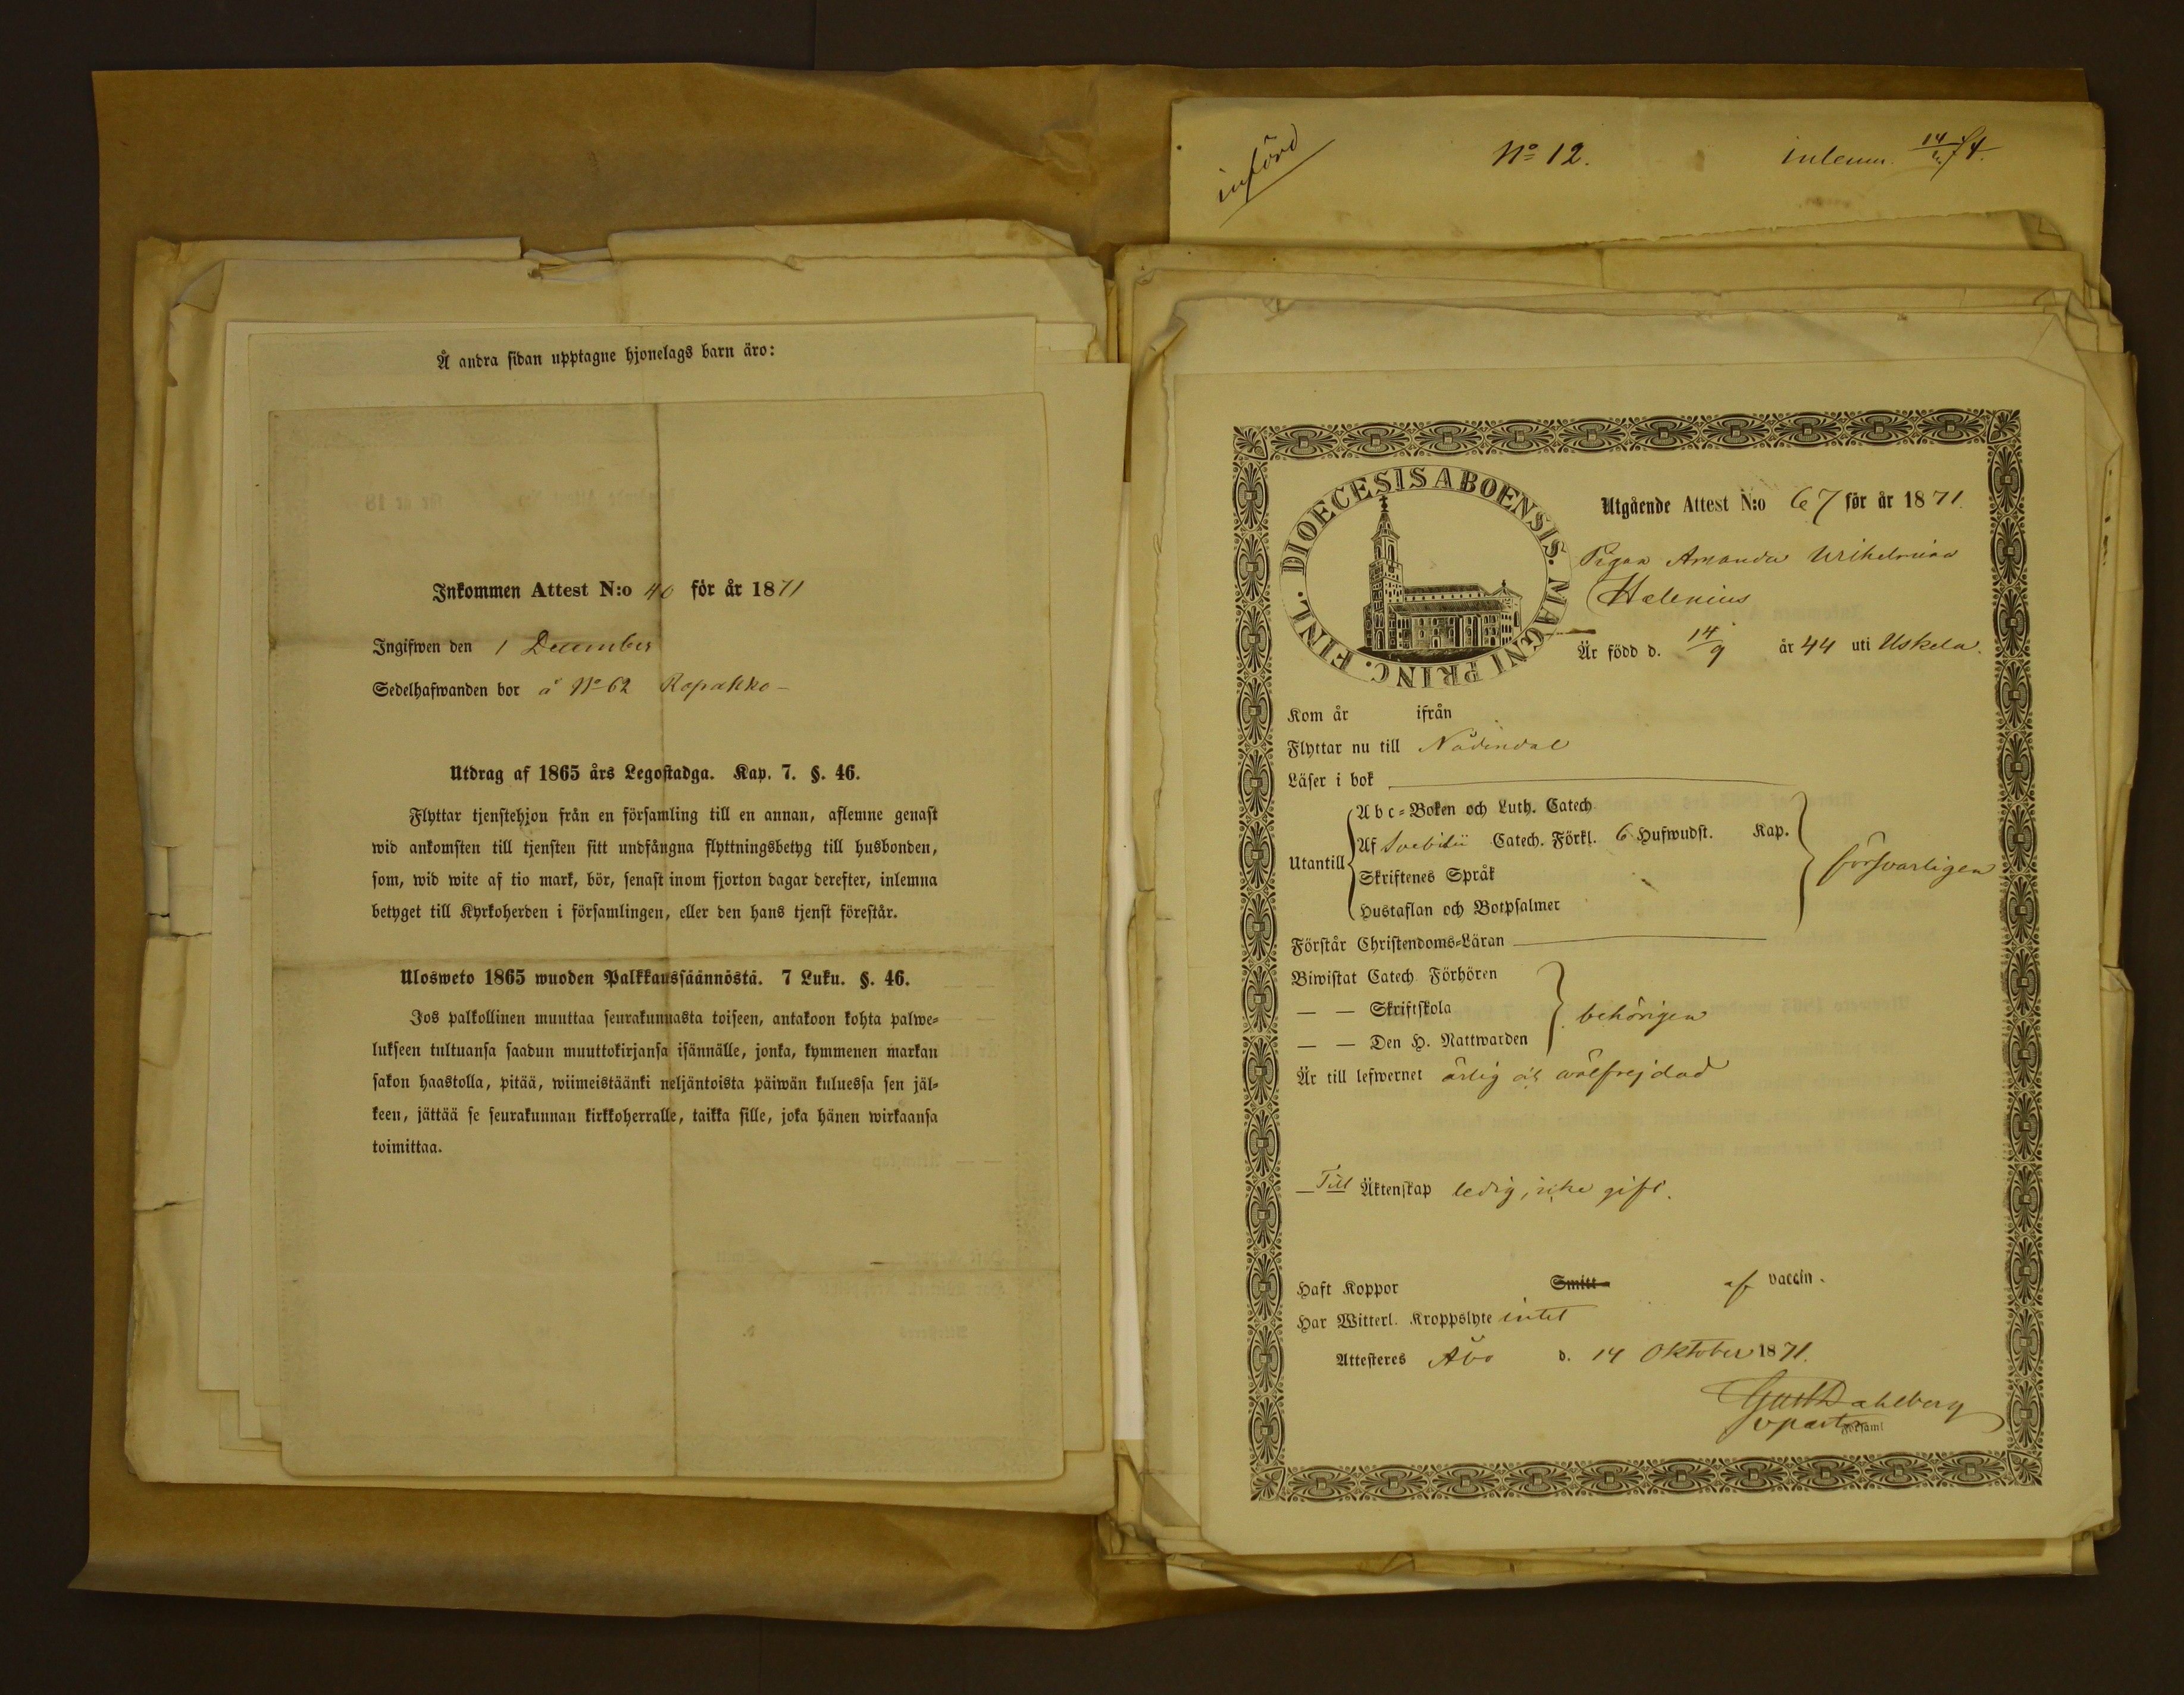 Å andra sidan upptagne hjonelags barn äro:
Inkommen Attest N:o 40 för år 1871
Ingifwen den 1 December
Sedelhafwanden bor å No 62 Kopakko -
Utdrag af 1865 års Legostadga. Kap. 7. §. 46.
Flyttar tjenstehjon från en församling till en annan, aflemne genast
wid ankomsten till tjensten sitt undfångna flyttningsbetyg till husbonden,
som, wid wite af tio mark, bör, senast inom fjorton dagar derefter, inlemna
betyget till Kyrkoherden i församlingen, eller den hans tjenst förestår.
Ulosweto 1865 wuoden Palkkaussäännöstä. 7 Luku. §. 46.
Jos palkollinen muuttaa seurakunnasta toiseen, antakoon kohta palwe-
lukseen tultuansa saadun muuttokirjansa isännälle, jonka, kymmenen markan
sakon haastolla, pitää, wiimeistäänki neljäntoista päiwän kuluessa sen jäl-
keen, jättää se seurakunnan kirkkoherralle, taikka sille, joka hänen wirkaansa
toimittaa.
införd
No 12.
inlemn.
DIOECESIS ABOENSIS. MAGNI PRINC. FINL.
Utgående Attest N:o 67 för år 1871.
Pigan Amanda Wilhelmina
Helenius
Är född d. 14/9 år 44 uti Uskela.
Kom år ifrån
Flyttar nu till Nådendal
Läser i bok
Utantill
Abc-Boken och Luth. Catech
Af Svebilii Catech. Förkl. 6 Hufwudst. Kap.
Skriftenes Språk
Hustaflan och Botpsalmer
försvarligen
Förstår Christendoms-Läran
Biwistat Catech. Förhören
— — Skriftskola
— — Den H. Nattwarden
behörigen
Är till lefwernet ärlig och wälfrejdad
— Till Äktenskap ledig, icke gift.
Haft Koppor Smitt af vaccin.
Har Witterl. Kroppslyte intet
Attesteres Åbo d. 14 Oktober 1871.
Gust Dahlberg
v pastor
Församl